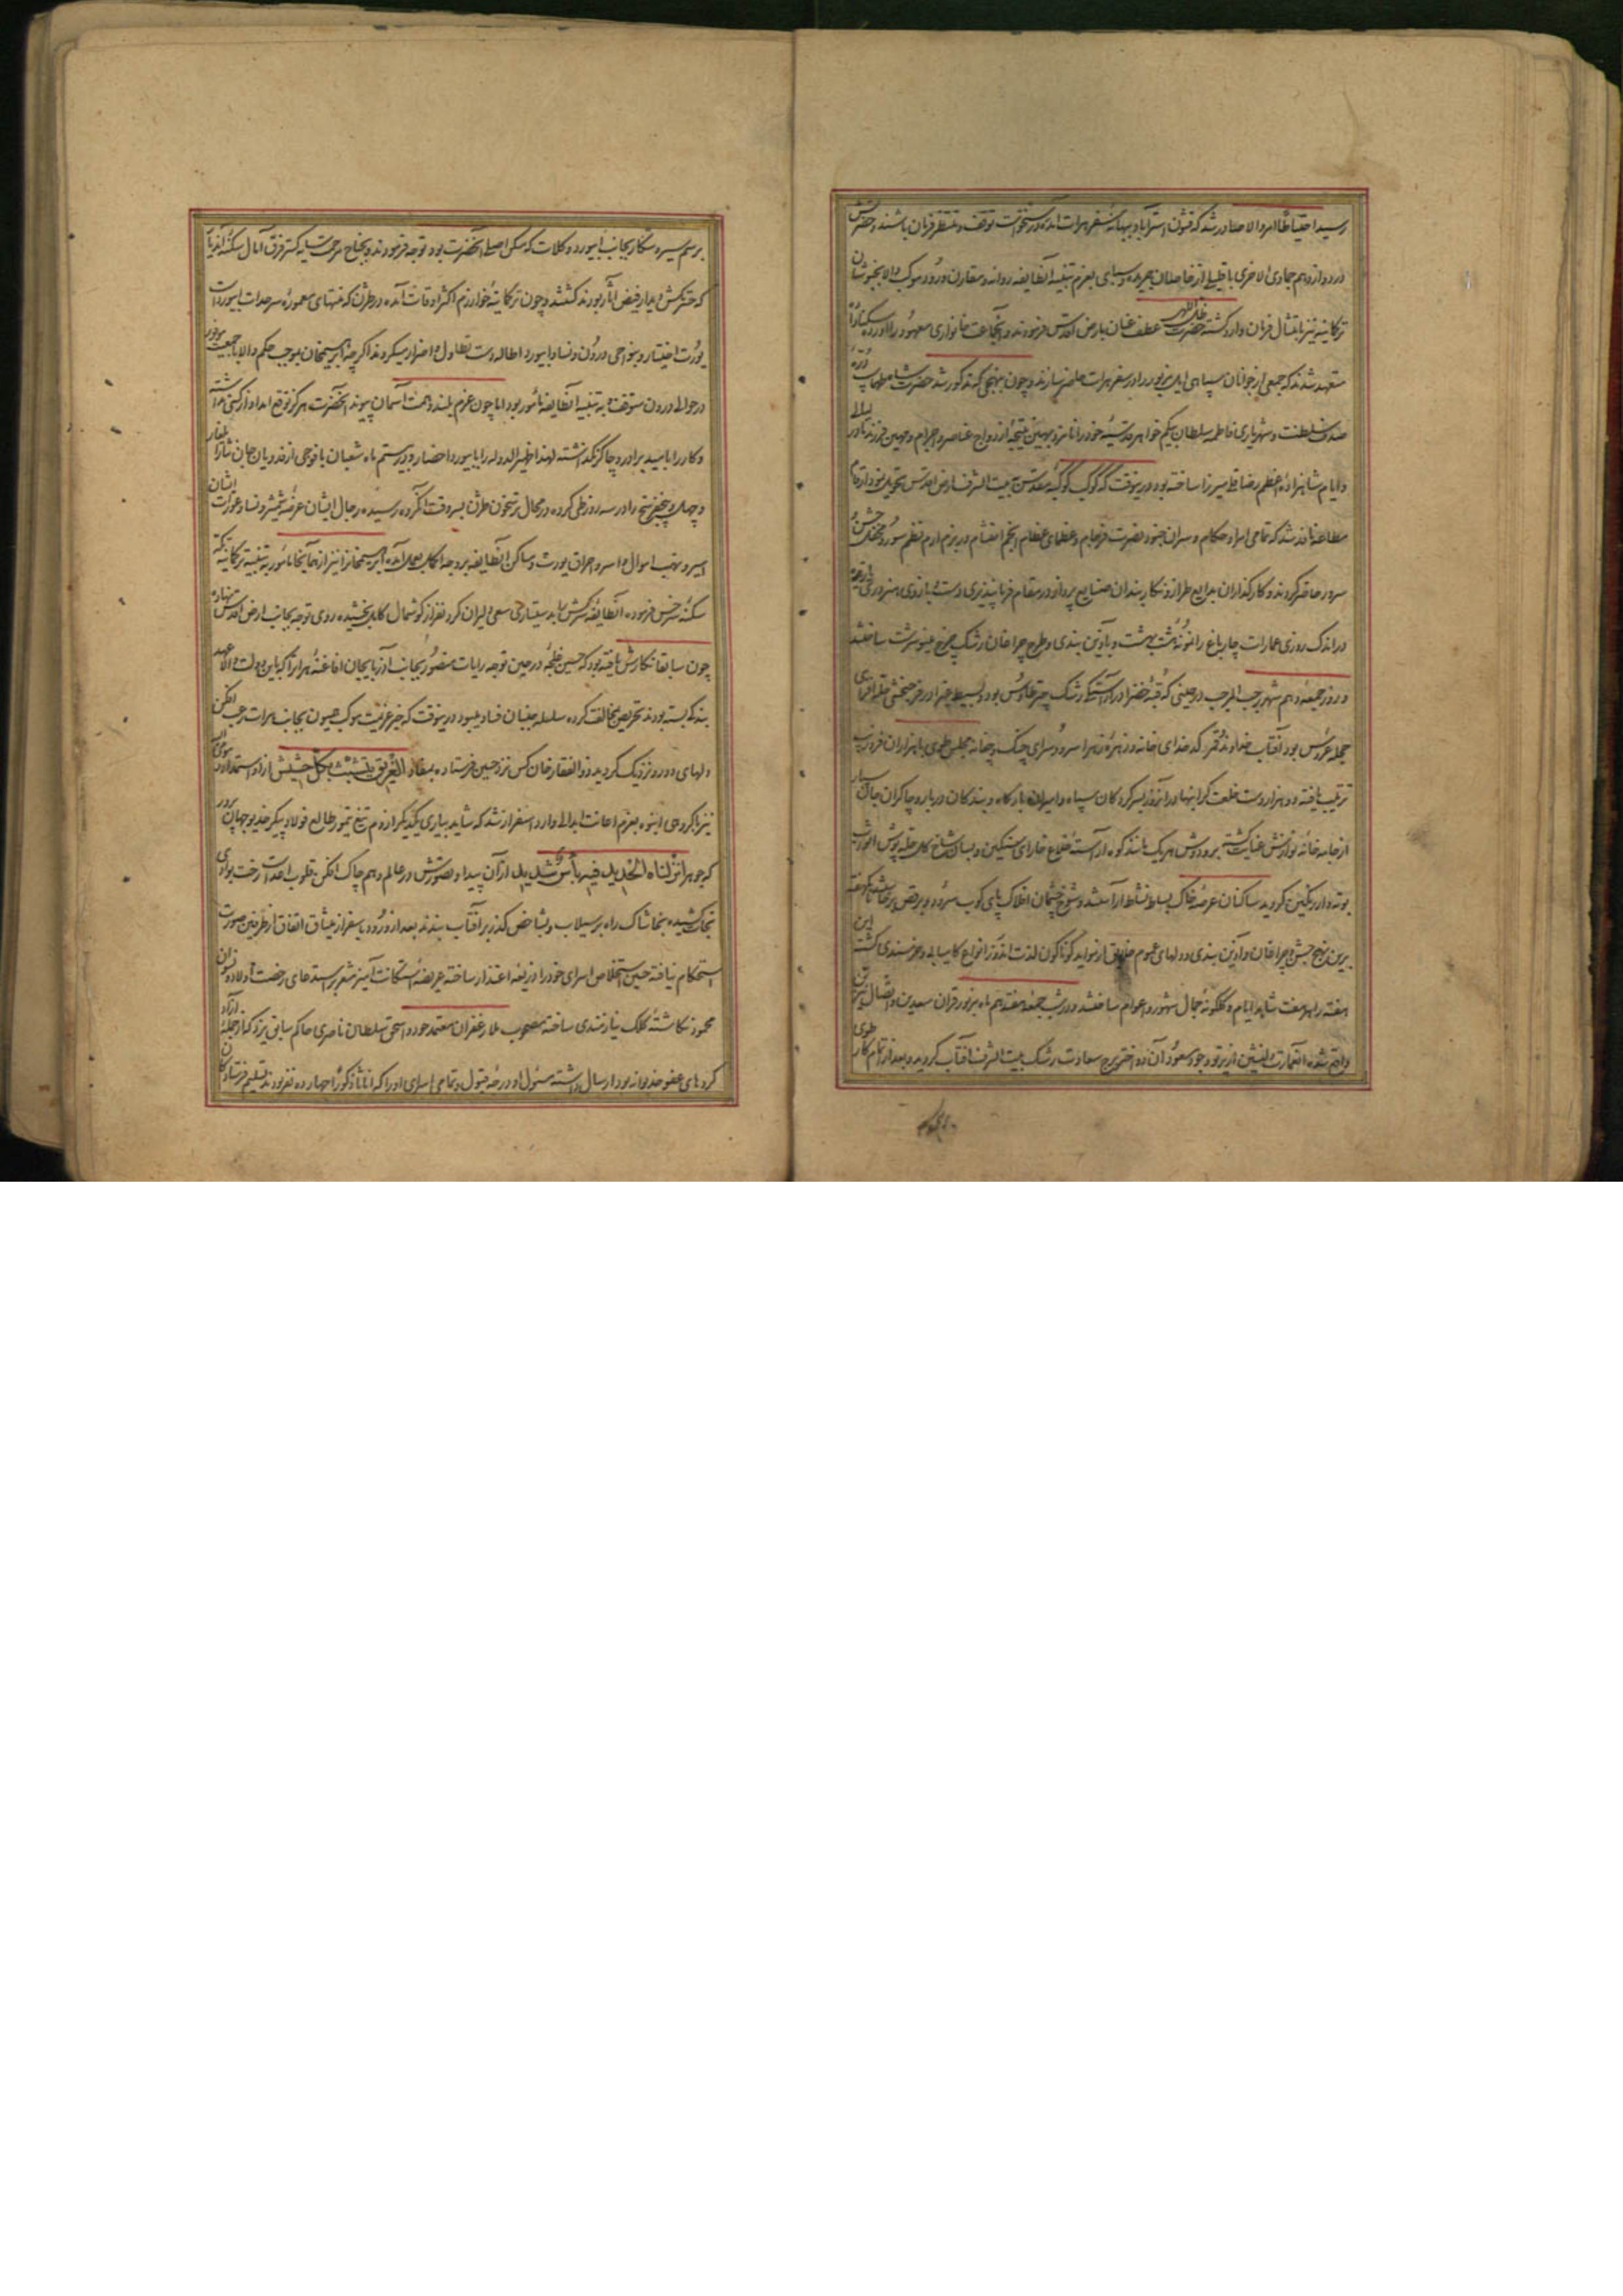 رسید احتیاطا امر والا صادر شد که قشون استراباد ببهانهٔ سفر هرات آمده در سنخواست توقف و منتظر فرمان باشند و حضرتش
در دوازدهم جمادی الاخری با قلیلی از خاصان جریده و سبای بعزم تنبیه آنطایفه روانه و مقارن ورود موکب والا بخبوشان
ترکمانیه نیز بامتثال فرمان وارد گشته حضرت ظل اللهی عطف عنان بارض اقدس فرمودند و آنجماعت خانواری معهود را آورده
متعهد شدند که جمعی از جوانان سپاهی ایل نیز بود در سفر هرات ملتزم سازند و چون بنهجی که مذکور شد حضرت شاه طهماسب درة
صدف سلطنت و شهریاری فاطمه سلطان بیگم خواهر قدسیهٔ خود را نامزد بهین نتیجهٔ ازدواج عناصر و اجرام و مهین فرزند نادر لیالی
و ایام شاهزادهٔ اعظم رضا قلی میرزا ساخته بود درینوقت که کوکب کوکبهٔ مقدس به بیت الشرف ارض اقدس تحویل نمود ارقام
مطاعه نافذ شد که تمامی امرا و حکام و سران جنود نصرت فرجام و عظمای عظام انجم احتشام در بزم ارم نظم سور و محفل جشن
سرور حاضر گردند و کارگذاران بدایع طراز و نگاربندان صنایع پرداز در مقام فرمانپذیری دست و بازوی هنروری
در اندک روزی عمارات چارباغ را نمونهٔ هشت بهشت و بآذین بندی و طرح چراغان رشک چرخ مینو سرشت ساختند
و روز جمعه دهم شهر رجب المرجب در حینی که قبهٔ خضرا در آراستگی رشک چتر طاوس بود و بسیط غبرا در فرح بخشی جلوه افزای
حجلهٔ عروس بود آفتاب خداوند قمر کدخدای خانه و زهرهٔ زهرا سرود سرای چنگ و چغانه مجلس طوی با هزاران فر و زیب
ترتیب یافته دو هزار دست خلعت گرانبها در آنروز بسرکردگان سپاه و امیران بارگاه و بندگان دربار و چاکران جان سپار
از جامه خانهٔ نوازش عنایت گشته بر و دوش هر یک مانند کوه آراسته خلاع خارای سنگین و بسان شاخ گل حله پوش اثواب
بوته دار رنگین گردید ساکنان عرصهٔ خاک بساط نشاط آراستند و شوخ چشمان افلاک پای کوب سرود و برقص برخاستند یکهفته
برین نهج جشن و چراغان و آذین بندی و دلهای عموم خلایق از مواید گوناگون لذت اندوز انواع کامیابی و خرسندی گشت این
هفته را بهر هفت شاهد ایام و گلگونهٔ جمال شهور و اعوام ساختند و در شب جمعه هفتدهم ماه مزبور قران سعدین و اتصال نیرین
واقع شده آنعمارت دلنشین از پرتو وجود مسعود آن دو اختر برج سعادت رشک بیت الشرف آفتاب گردید و بعد از اتمام کار طوی
برسم سیر و شکار بجانب ابیورد و کلات که مسکن اصلی آنحضرت بود توجه فرمودند و بجناح مرحمت سایه گستر فرق آمال سکنهٔ آندیار
که حسرتکش دیدار فیض آثار بودند گشتند و چون ترکمانیهٔ خوارزم اکثر اوقات آمده در طژن که منتهای معمورهٔ سرحدات ابیورد است
یورت اختیار و بنواحی درون و نسا و ابیورد اطاله دست تطاول و اضرار میکردند اگرچه ابرهیمخان بموجب حکم والا با جمعیت موفور
در حوالی درون متوقف و به تنبیه آنطایفه مأمور بود اما چون عزم بلند و همت آسمان پیوند آنحضرت هرگز توقع امداد از کسی نداشته
و کار را بامید برادر و چاکر نگذاشته لهذا ظهیر الدوله را بابیورد احضار و در بیستم ماه شعبان با فوجی از فدویان جان نثار ایلغار
و چهل و پنج فرسخ را در سه روز طی کرده در محال ترسخون طژن بسر وقت آنگروه رسیده رجال ایشان عرضهٔ شمشیر و نسا و عورات ایشان
اسیر و نهب اموال و اسر و احراق یورت و مساکن آنطایفه بر وجه اکمل بعمل آمده ابرهیمخان را نیز از همانجا مأمور به تنبیه ترکمانیه تکه
سکنهٔ سرخس فرموده آنطایفهٔ سرکش را بدستیاری سعی دلیران کرد نفرازگوشمال کامل بخشیده روی توجه بجانب ارض اقدس نهادند
چون سابقا نگارش یافته بود که حسین غلجه در حین توجه رایات منصور بجانب آذربایجان افاغنهٔ هرات را که باین دولت والا عهد
بندگی بسته بودند تحریص بمخالفت کرده سلسله جنبان فساد میبود درینوقت که خبر عزیمت موکب همیون بجانب هرات رعب افکن
دلهای دور و نزدیک گردید ذو الفقار خان کس نزد حسین فرستاده بمفاد الغریق یتشبث بکل حشیش از او استمداد نمود او
نیز با گروهی انبوه بعزم اعانت ابدالی وارد اسفزار شد که شاید بیاری یکدیگر از دم تیغ تیمور طالع فولاد پیکر خدیو جهان پرور
که جوهر انزلنا الحدید فیه بأس شدید از آن پیدا و تصورش در عالم وهم چاک افکن قلوب اعداست رخت بوادی
نجات کشیده بخاشاک راه بر سیلاب و بشاخص گذر بر آفتاب بندند بعد از ورود باسفزار میثاق اتفاق از طرفین صورت
استحکام نیافته حسین استخلاص اسرای خود را ذریعهٔ اعتذار ساخته عریضهٔ استکانت آمیز مشعر بر استدعای رخصت اولاد و نسوان
محمود نگاشتهٔ کلک نیازمندی ساخته مصحوب ملا زعفران معتمد خود و اسحق سلطان ناصری حاکم سابق یزد که از جملهٔ آزاد
کردهای عفو خدیوانه بود ارسال داشته مسئول او درجهٔ قبول و تمامی اسرای او را که اناثا و ذکورا چهارده نفر بودند تسلیم فرستادگان